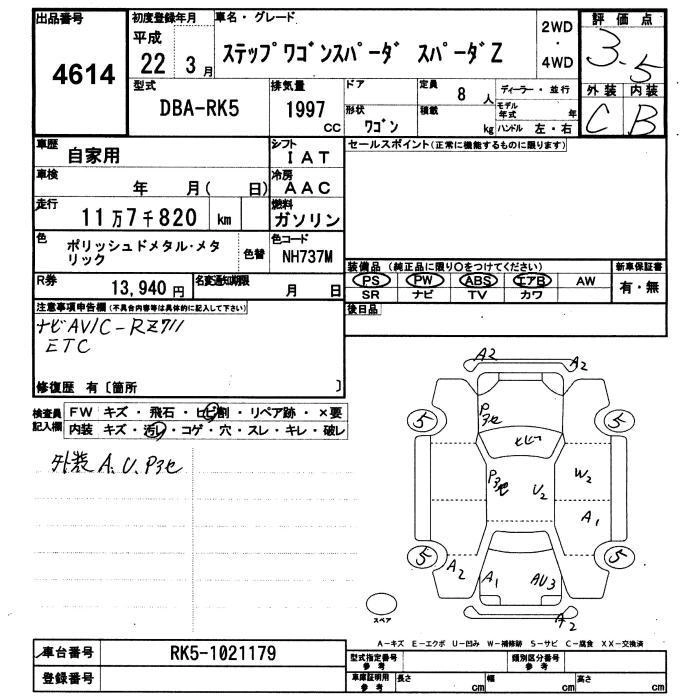 出品番号
4614
初度登録年月
平成
22 3月
車名・グレード
ステップワゴンスパーダ スパーダZ
2WD
・
4WD
評価点
3.5
型式
DBA-RK5
排気量
1997
cc
ドア
形状
ワゴン
定員
8人
積載
kg
ディーラー・並行
モデル年式 年
ハンドル 左・右
外装 内装
C B
車歴
自家用
シフト
IAT
セールスポイント(正常に機能するものに限ります)
車検
年 月( 日)
冷房
AAC
走行
11万7千820 km
燃料
ガソリン
色
ポリッシュドメタル・メタ
リック
色替
色コード
NH737M
装備品(純正品に限り○をつけてください)
PS PW ABS エアB AW
SR ナビ TV カワ
新車保証書
有・無
R券
13,940円
名変通知期限
月 日
後日品
注意事項申告欄(不具合内容等は具体的に記入して下さい)
ナビAVIC-RZ711
ETC
修復歴 有〔箇所 〕
検査員
記入欄
FW キズ・飛石・ヒビ割・リペア跡・×要
内装 キズ・汚レ・コゲ・穴・スレ・キレ・破レ
外装 A、U、P3セ
A2
A2
5
5
P3セ
ヒビー
P3セ
U2
W2
A1
5
5
A2
A1
AU3
A2
スペア
A-キズ E-エクボ U-凹み W-補修跡 S-サビ C-腐食 XX-交換済
車台番号
RK5-1021179
登録番号
型式指定番号
参考
類別区分番号
参考
車庫証明用
参考
長さ cm
幅 cm
高さ cm